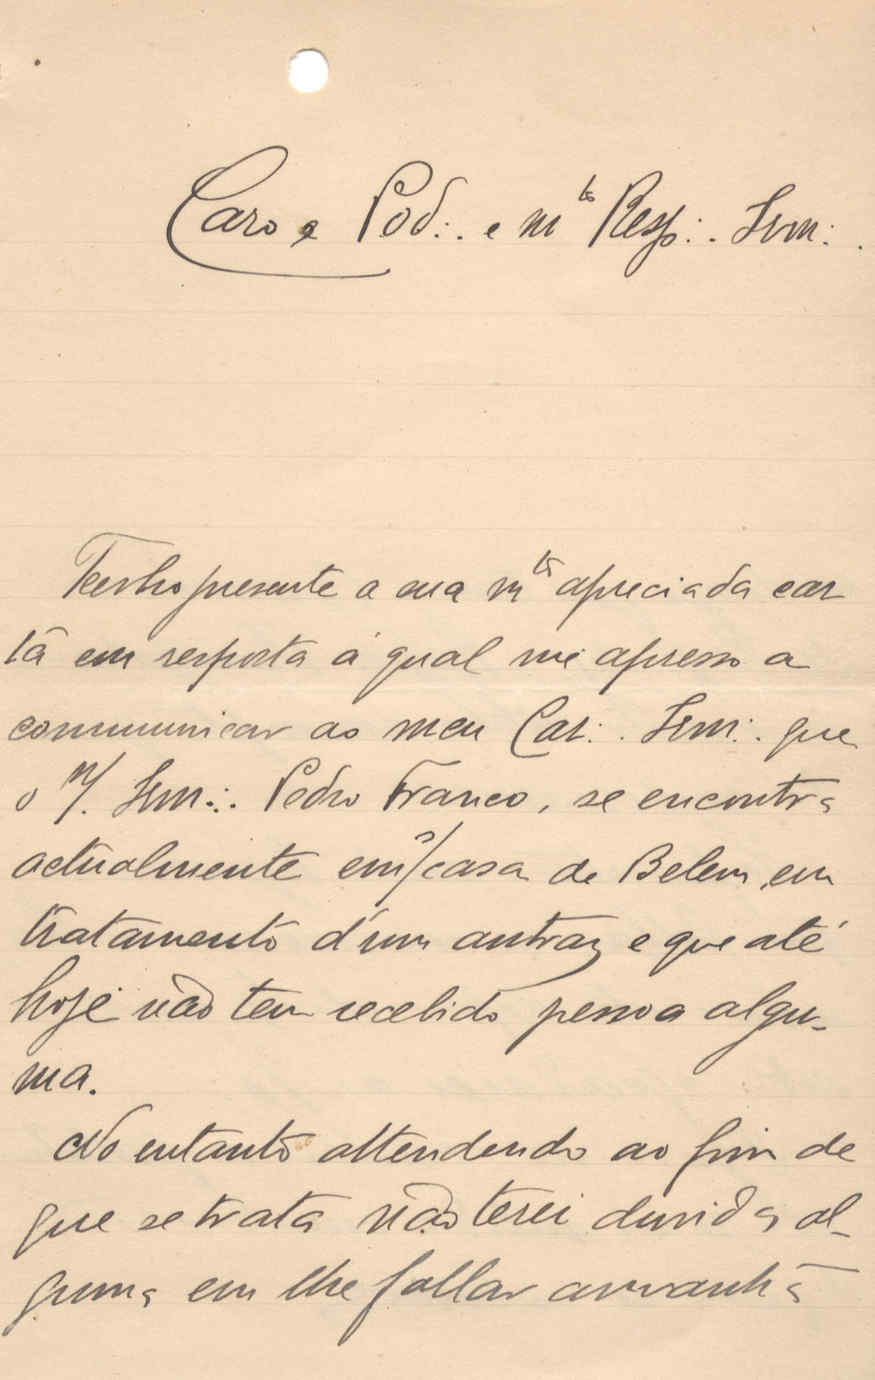 Caro e Pod∴ e mto Resp∴ Irm∴
Tenho presente a sua mto apreciada car
ta em resposta á qual me apresso a
communicar ao meu Car∴ Irm∴ que
o n/. Irm∴ Pedro Franco, se encontra
actualmente em s/casa de Belem, em
tratamento d'um antraz e que até
hoje não tem recebido pessoa algu-
ma.
No entanto attendendo ao fim de
que se trata não terei duvida al-
guma em lhe fallar amanhã